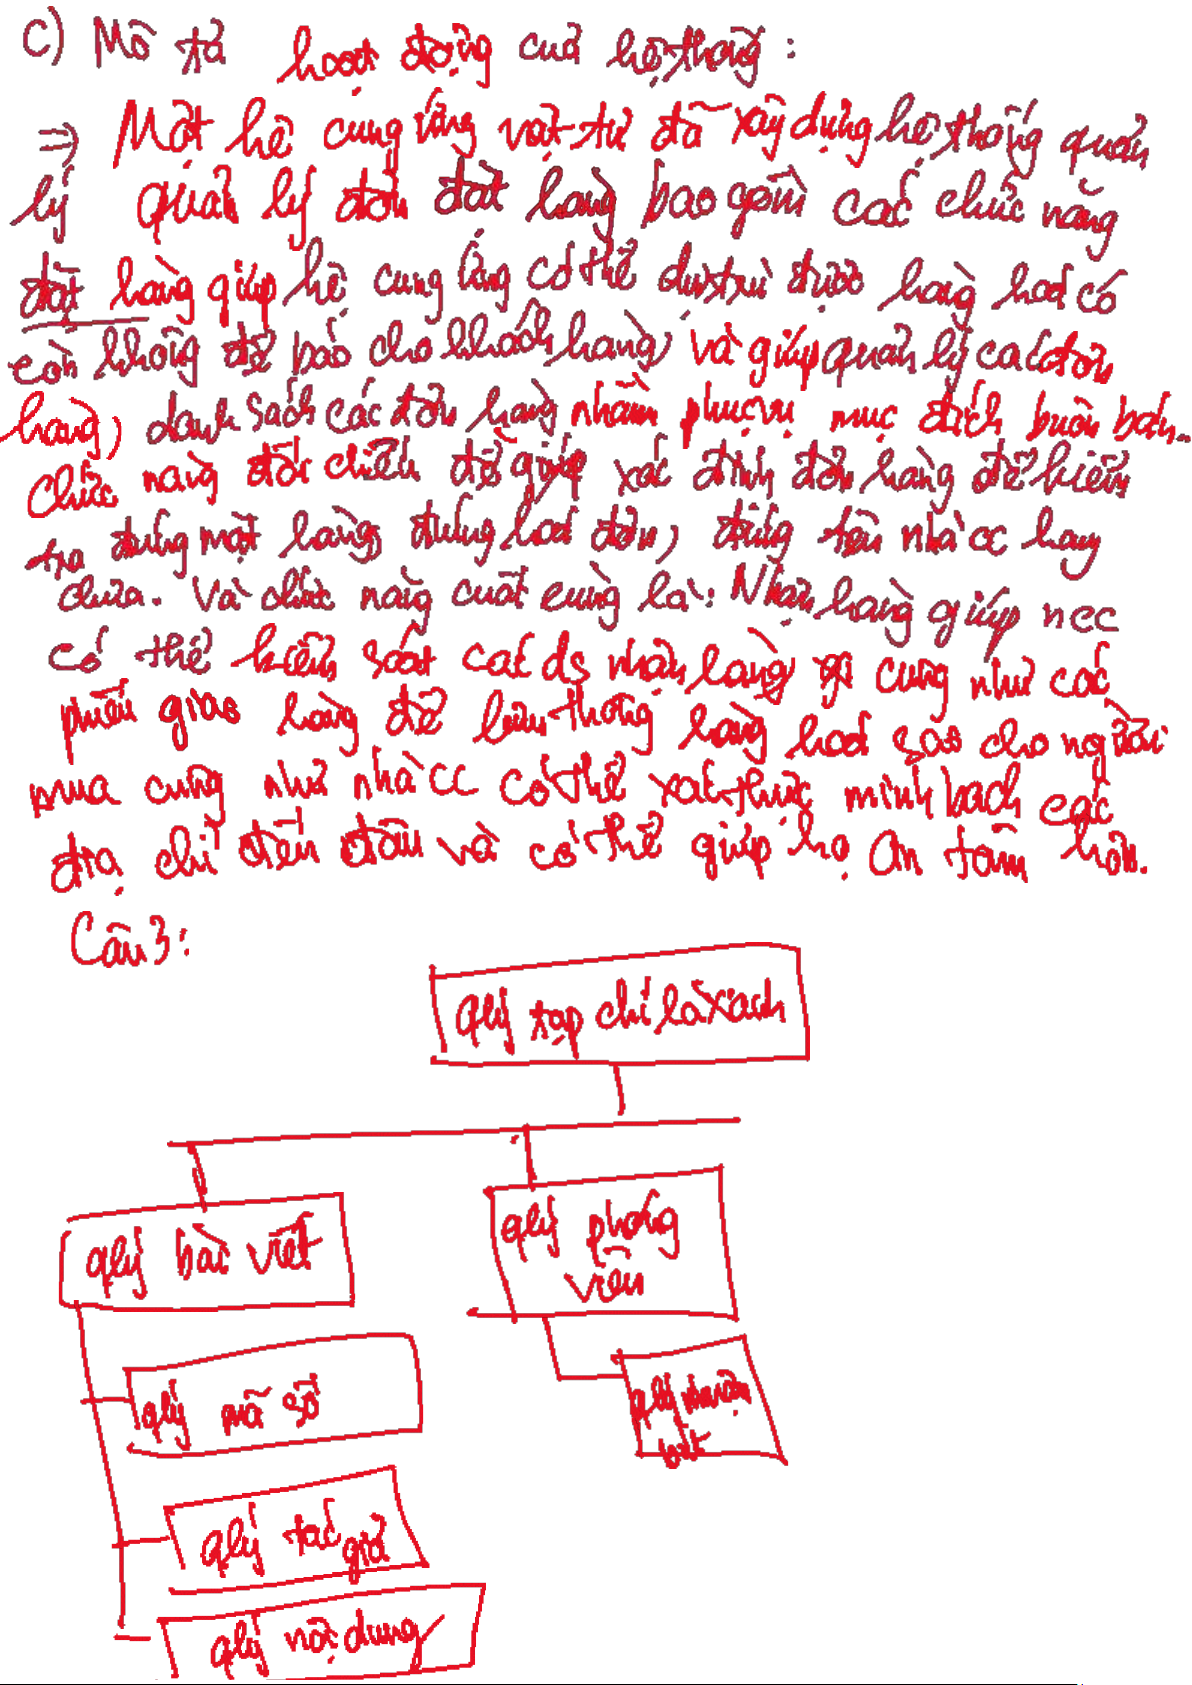 c) Mô tả hoạt động của hệ thống :
=> Một hệ cung ứng vật tư đã xây dựng hệ thống quản
lý quản lý đơn đặt hàng bao gồm các chức năng
đặt hàng giúp hệ cung ứng có thể dự trù được hàng hoá có
còn không để báo cho khách hàng, và giúp quản lý các đơn
hàng, danh sách các đơn hàng nhằm phục vụ mục đích buôn bán..
Chức năng đối chiếu để giúp xác định đơn hàng để kiểm
tra đúng mặt hàng, đúng hoá đơn, đúng tên nhà cc hay
chưa. Và chức năng cuối cùng là: Nhận hàng giúp ncc
có thể kiểm soát các ds nhận hàng gì cũng như các
phiếu giao hàng để lưu thông hàng hoá sao cho người
mua cũng như nhà cc có thể xác thực minh bạch các
địa chỉ đến đâu và có thể giúp họ an tâm hơn.
Câu 3:
qlý tạp chí lá xanh
qlý bài viết
qlý phóng
viên
qlý mã số
qlý nhuận
bút
qlý tác giả
qlý nội dung